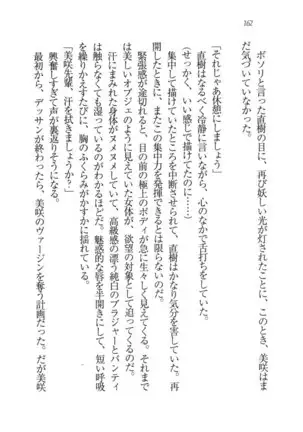 162
ボソリと言った直樹の目に、再び妖しい光が灯されたことに、このとき、美咲はま
だ気づいていなかった。
「それじゃあ休憩にしましょうか」
直樹はなるべく冷静に言いながら、心のなかで舌打ちをしていた。
(せっかく、いい感じで描けていたのに……)
集中して描けていたところを中断させられて、直樹はかなり気分を害していた。再
開しても、またこの集中力を発揮できるとは限らないのだ。
緊張感が途切れると、目の前の極上のボディが急に生々しく見えてくる。それまで
は美しいオブジェのように見えていた女体が、欲望の対象として迫ってくるのだ。
汗にまみれた身体がヌメヌメしていて、高級感の漂う純白のブラジャーとパンティ
は触らなくても湿っているのがわかるほどだ。魅惑的な唇を半開きにして、短い呼吸
を繰りかえすたびに、胸のふくらみがかすかに揺れている。
「美咲先輩、汗を拭きましょうか?」
興奮しすぎて声が裏返りそうになる。
最初から、デッサンが終わったら、美咲のヴァージンを奪う計画だった。だが美咲